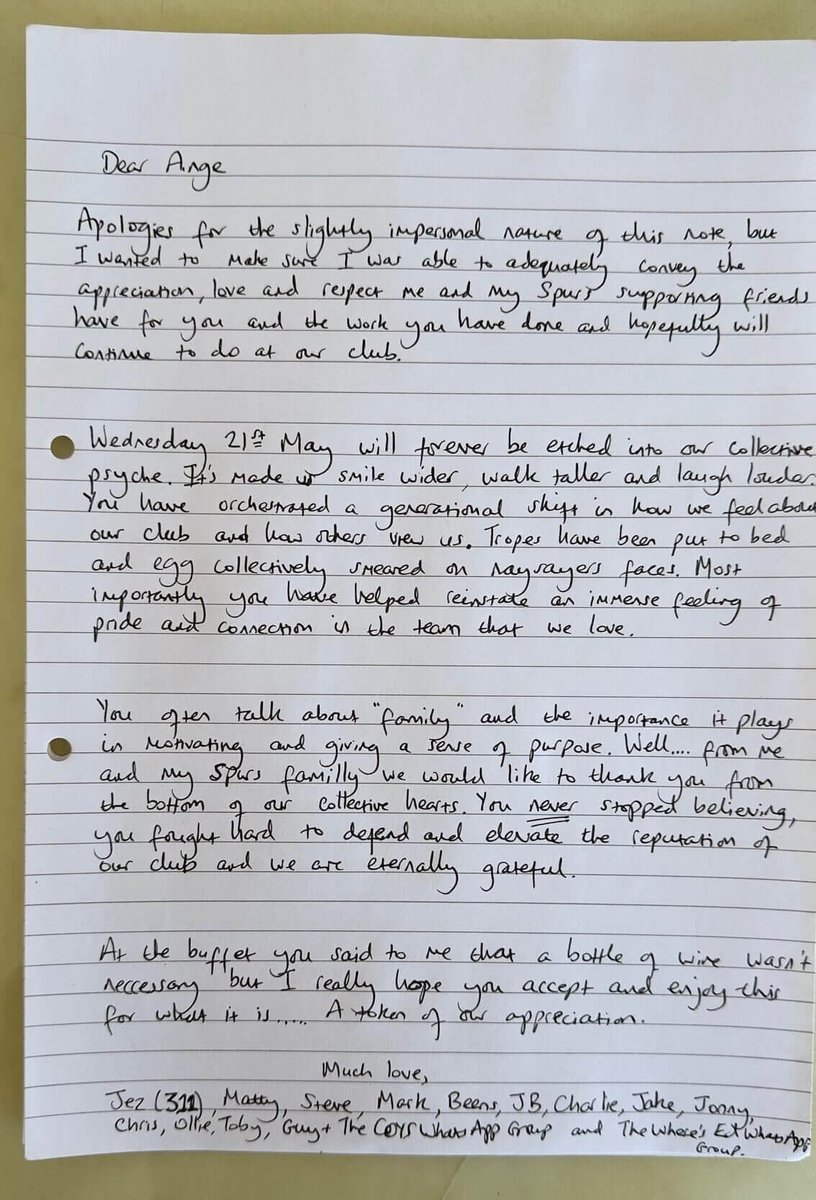 Dear Ange
Apologies for the slightly impersonal nature of this note, but
I wanted to make sure I was able to adequately convey the
appreciation, love and respect me and my Spurs supporting friends
have for you and the work you have done and hopefully will
continue to do at our club.
Wednesday 21st May will forever be etched into our collective
psyche. It's made us smile wider, walk taller and laugh louder.
You have orchestrated a generational shift in how we feel about
our club and how others view us. Tropes have been put to bed
and egg collectively smeared on naysayers faces. Most
importantly you have helped reinstate an immense feeling of
pride and connection in the team that we love.
You often talk about "family" and the importance it plays
in motivating and giving a sense of purpose. Well.... from me
and my Spurs familly we would like to thank you from
the bottom of our collective hearts. You never stopped believing,
you fought hard to defend and elevate the reputation of
our club and we are eternally grateful.
At the buffet you said to me that a bottle of wine wasn't
neccessary but I really hope you accept and enjoy this
for what it is..... A token of our appreciation.
Much love,
Jez (311), Matty, Steve, Mark, Beens, JB, Charlie, Jake, Jonny,
Chris, Ollie, Toby, Guy + The COYS WhatsApp Group and The Where's WhatsApp
Group.